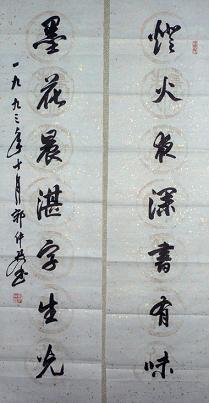 燈火夜深書有味
墨花晨湛字生光
一九九三年十月